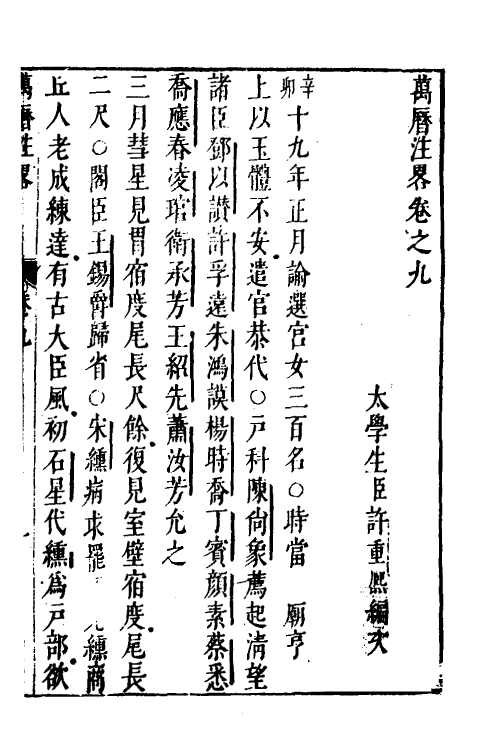 萬曆注畧卷之九
太學生臣許重熈編次
辛卯十九年正月諭選宮女三百名○時當　廟享
上以玉體不安遣官恭代○戶科陳尚象薦起淸望
諸臣鄧以讃許孚遠朱鴻謨楊時喬丁賓顏素蔡悉
喬應春凌琯衛承芳王紹先蕭汝芳允之
三月彗星見胃宿度尾長尺餘復見室壁宿度尾長
二尺○閣臣王錫爵歸省○宋纁病求罷　纁商
丘人老成練達有古大臣風初石星代纁爲戶部欲
萬曆注畧　卷九